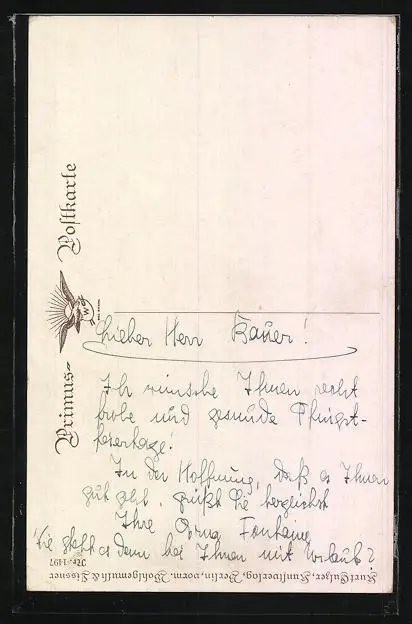 Primus-Postkarte
W
Lieber Herr Bauer!
Ich wünsche Ihnen recht
frohe und gesunde Pfingst-
feiertage!
In der Hoffnung, daß es Ihnen
gut geht, grüßt Sie herzlichst
Ihre Erna Fontaine
Wie steht es denn bei Ihnen mit Urlaub?
Nr. 1497
Kurt Gulzer, Kunstverlag, Berlin, vorm. Wohlgemuth & Lissner